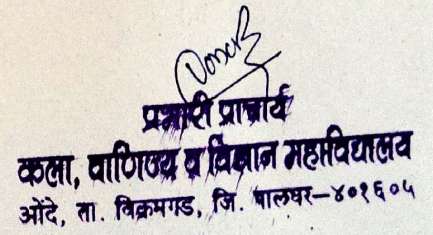 प्रभारी प्राचार्य
कला, वाणिज्य व विज्ञान महाविद्यालय
ओंदे, ता. विक्रमगड, जि. पालघर-४०१६०५